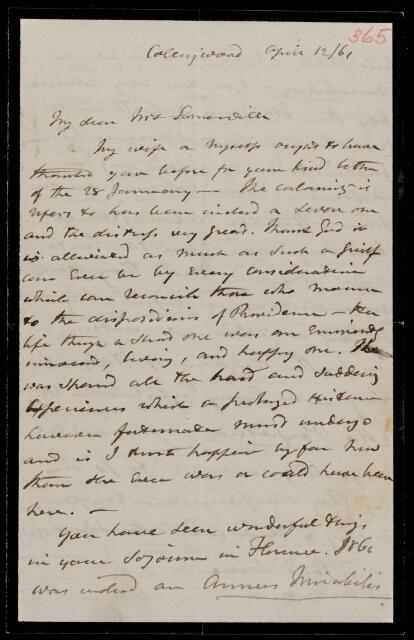 365
Collingwood April 12/61
My dear Mrs Somerville
My wife & myself ought to have
thanked you before for your kind letter
of the 28 January — The calamity it
refers to has been indeed a severe one
and the distress very great. Thank God it
is alleviated as much as such a grief
can ever be by every consideration
which can reconcile those who mourn
to the dispositions of Providence — Her
life though a short one was an eminently
innocent, loving, and happy one. She
was spared all the hard and saddening
experiences which a prolonged existence
however fortunate must undergo
and is I trust happier by far now
than she ever was or could have been
here. —
You have seen wonderful things
in your sojourn in Florence. 1860
was indeed an Annus Mirabilis